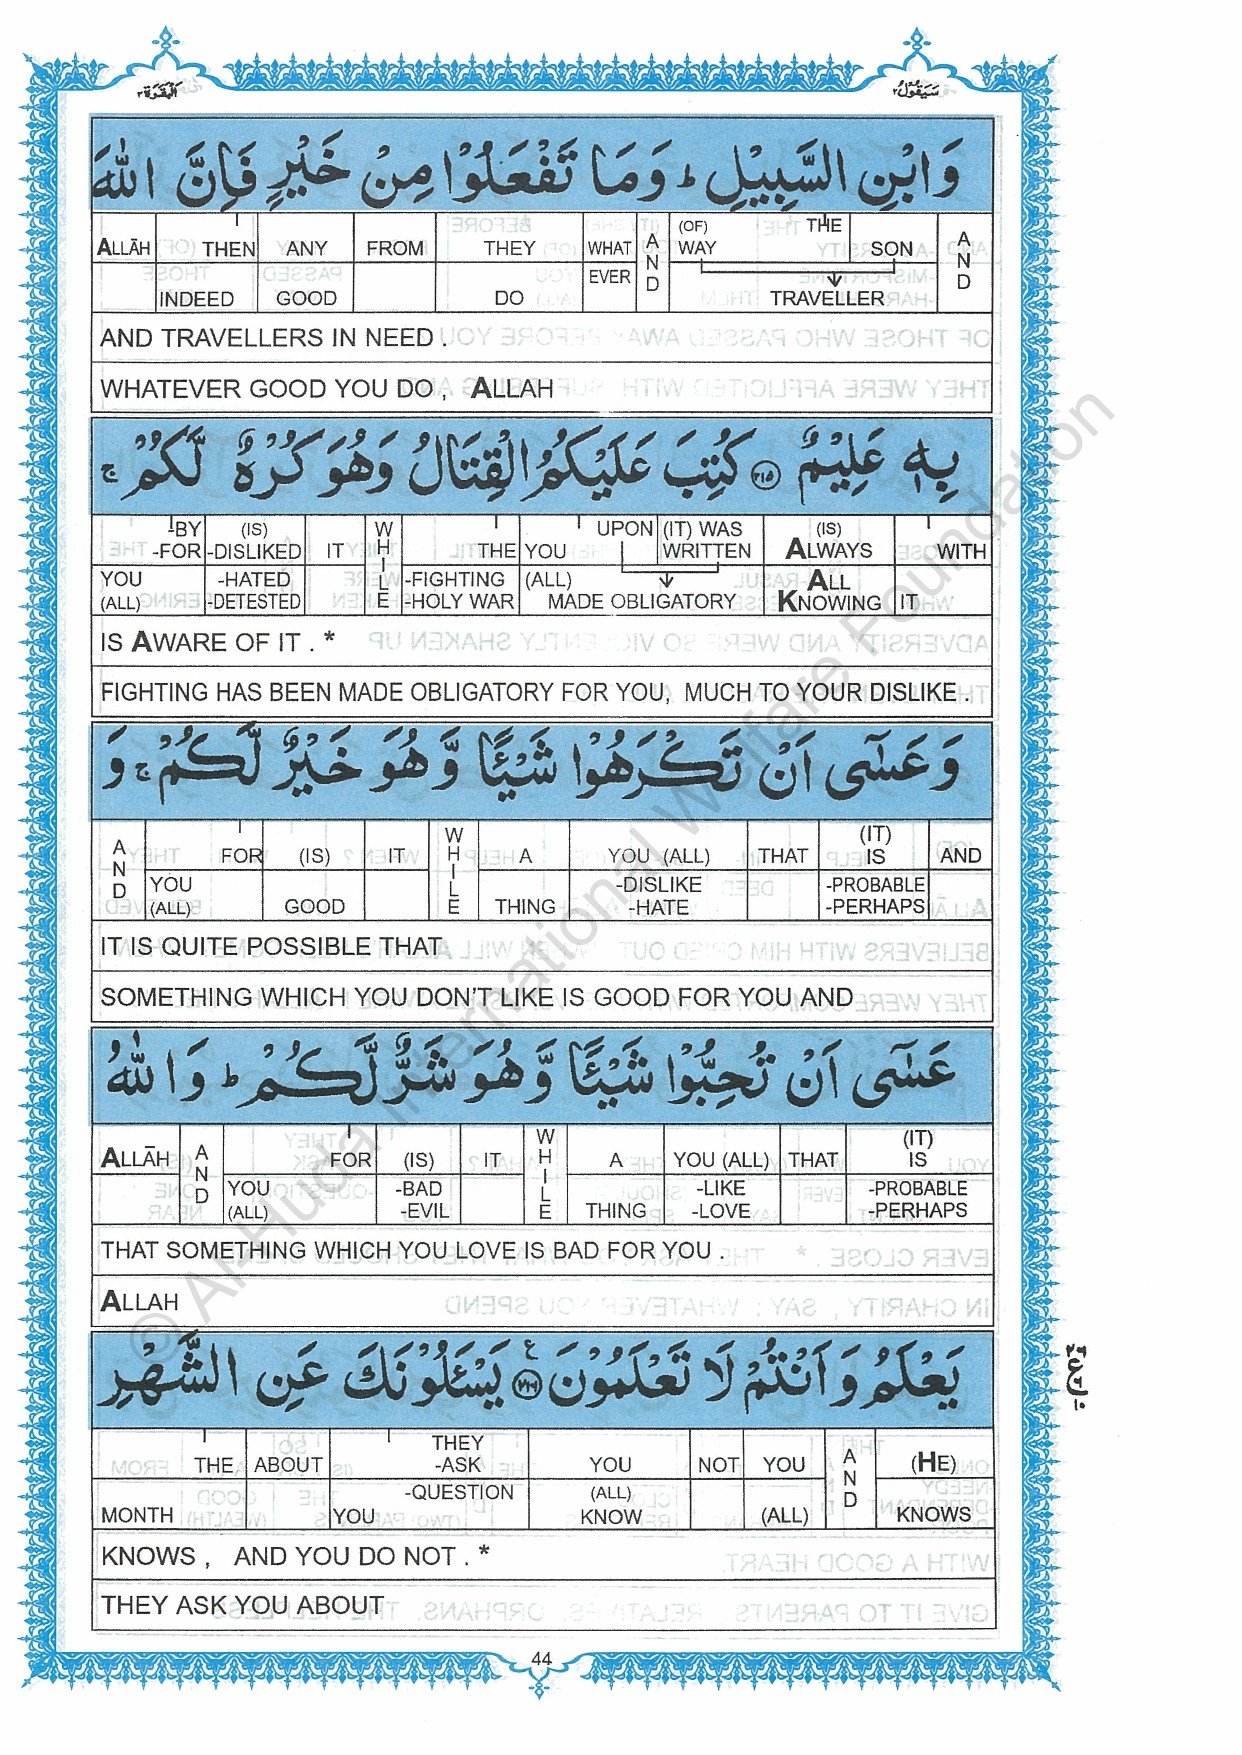 البقرة ٢
سيقول ٢
وَابْنِ السَّبِيْلِ ؕ وَمَا تَفْعَلُوْا مِنْ خَيْرٍ فَاِنَّ اللّٰهَ
ALLĀH THEN ANY FROM THEY WHAT AND (OF) WAY THE SON AND
INDEED GOOD DO EVER TRAVELLER
AND TRAVELLERS IN NEED .
WHATEVER GOOD YOU DO , ALLAH
بِهٖ عَلِيْمٌ ﴿۲۱۵﴾ كُتِبَ عَلَيْكُمُ الْقِتَالُ وَهُوَ كُرْهٌ لَّكُمْ ۚ
-BY -FOR (IS) -DISLIKED IT WHILE THE YOU UPON (IT) WAS WRITTEN (IS) ALWAYS WITH
YOU (ALL) -HATED -DETESTED -FIGHTING -HOLY WAR (ALL) MADE OBLIGATORY ALL KNOWING IT
IS AWARE OF IT . *
FIGHTING HAS BEEN MADE OBLIGATORY FOR YOU, MUCH TO YOUR DISLIKE .
وَعَسٰٓى اَنْ تَكْرَهُوْا شَيْـًٔا وَّهُوَ خَيْرٌ لَّكُمْ ۚ وَ
AND FOR (IS) IT WHILE A YOU (ALL) THAT (IT) IS AND
YOU (ALL) GOOD THING -DISLIKE -HATE -PROBABLE -PERHAPS
IT IS QUITE POSSIBLE THAT
SOMETHING WHICH YOU DON'T LIKE IS GOOD FOR YOU AND
عَسٰٓى اَنْ تُحِبُّوْا شَيْـًٔا وَّهُوَ شَرٌّ لَّكُمْ ؕ وَاللّٰهُ
ALLĀH AND FOR (IS) IT WHILE A YOU (ALL) THAT (IT) IS
YOU (ALL) -BAD -EVIL THING -LIKE -LOVE -PROBABLE -PERHAPS
THAT SOMETHING WHICH YOU LOVE IS BAD FOR YOU .
ALLAH
يَعْلَمُ وَاَنْتُمْ لَا تَعْلَمُوْنَ ﴿۲۱۶﴾ ع يَسْـَٔلُوْنَكَ عَنِ الشَّهْرِ
THE ABOUT THEY -ASK YOU NOT YOU AND (HE)
MONTH YOU -QUESTION (ALL) KNOW (ALL) KNOWS
KNOWS , AND YOU DO NOT . *
THEY ASK YOU ABOUT
44
© Al-Huda International Welfare Foundation